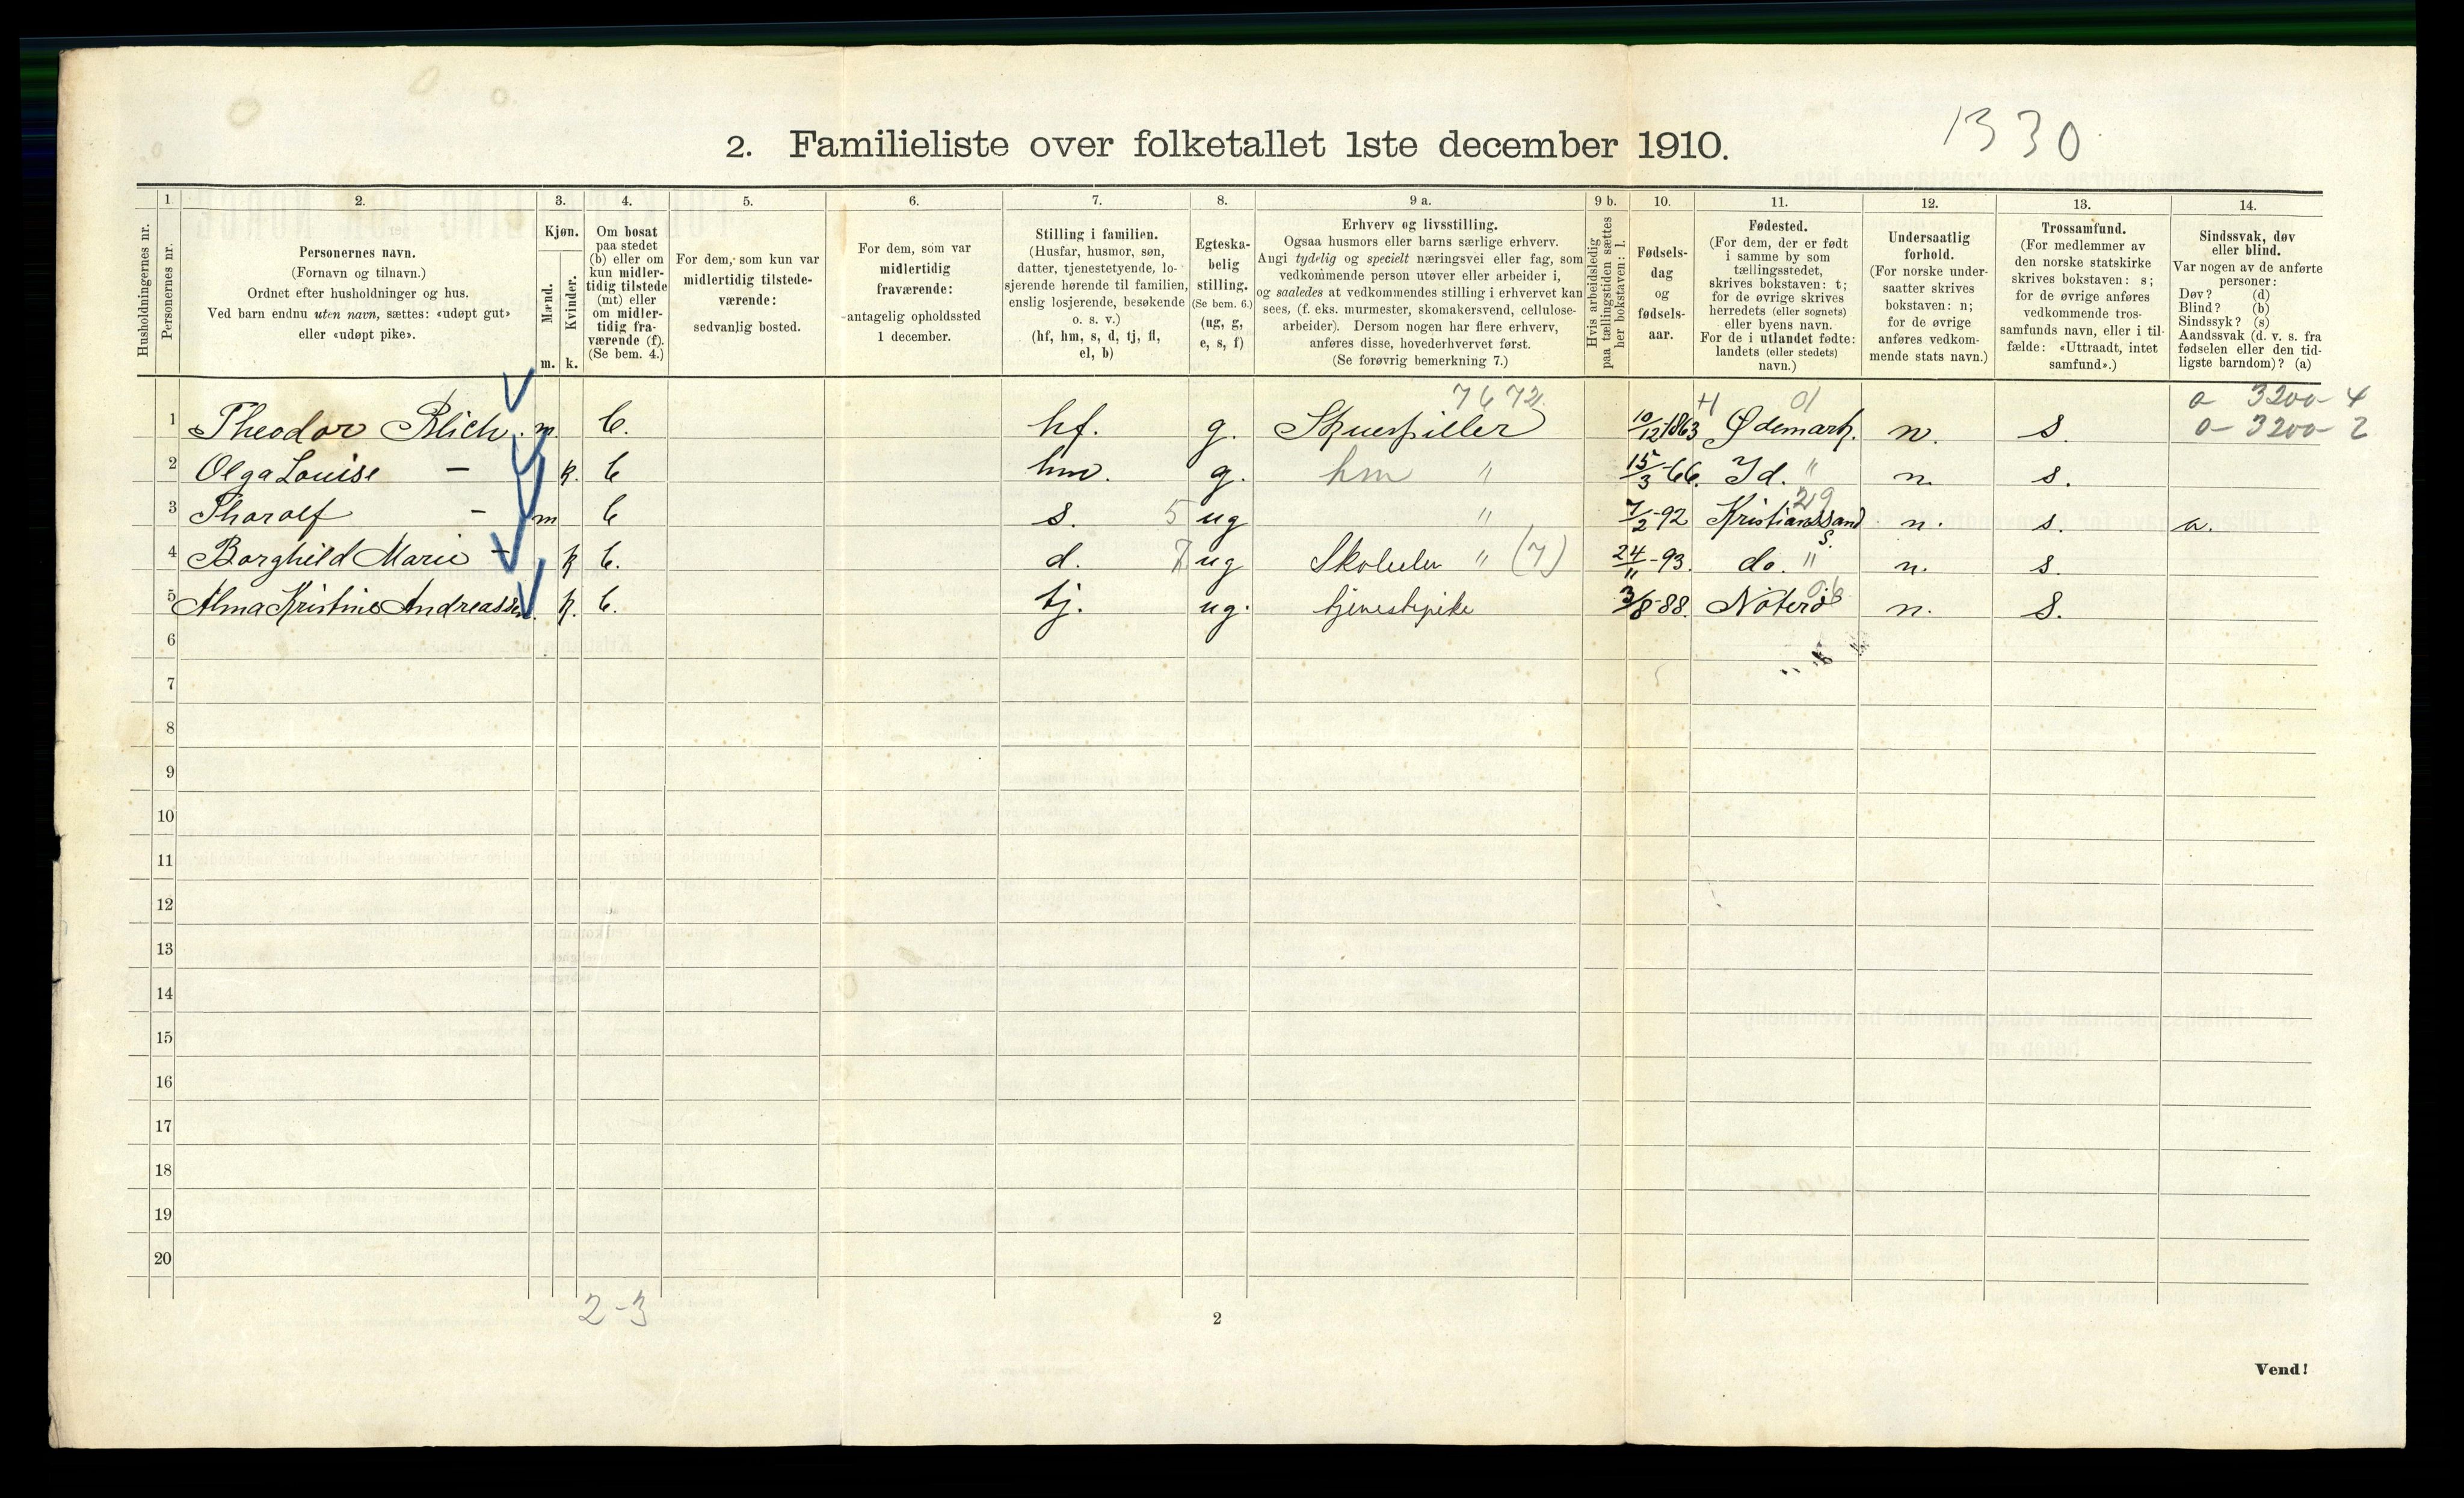 2. Familieliste over folketallet 1ste december 1910.
1330
Husholdningernes nr.
1
Personernes nr.
2.
Personernes navn.
(Fornavn og tilnavn.)
Ordnet efter husholdninger og hus.
Ved barn endnu uten navn, sættes: «udøpt gut»
eller «udøpt pike».
3.
Kjøn.
Mænd.
Kvinder.
m. k.
4.
Om bosat
paa stedet
(b) eller om
kun midler-
tidig tilstede
(mt) eller
om midler-
tidig fra-
værende (f).
(Se bem. 4.)
5.
For dem, som kun var
midlertidig tilstede-
værende:
sedvanlig bosted.
6.
For dem, som var
midlertidig
fraværende:
antagelig opholdssted
1 december.
7.
Stilling i familien.
(Husfar, husmor, søn,
datter, tjenestetyende, lo-
sjerende hørende til familien,
enslig losjerende, besøkende
o. s. v.)
(hf, hm, s, d, tj, fl,
el, b)
8.
Egteska-
belig
stilling.
(Se bem. 6.)
(ug, g,
e, s, f)
9 a.
Erhverv og livsstilling.
Ogsaa husmors eller barns særlige erhverv.
Angi tydelig og specielt næringsvei eller fag, som
vedkommende person utøver eller arbeider i,
og saaledes at vedkommendes stilling i erhvervet kan
sees, (f. eks. murmester, skomakersvend, cellulose-
arbeider). Dersom nogen har flere erhverv,
anføres disse, hovederhvervet først.
(Se forøvrig bemerkning 7.)
9 b.
Hvis arbeidsledig
paa tællingstiden sættes
her bokstaven: l.
10.
Fødsels-
dag
og
fødsels-
aar.
11.
Fødested.
(For dem, der er født
i samme by som
tællingsstedet,
skrives bokstaven: t;
for de øvrige skrives
herredets (eller sognets)
eller byens navn.
For de i utlandet fødte:
landets (eller stedets)
navn.)
12.
Undersaatlig
forhold.
(For norske under-
saatter skrives
bokstaven: n;
for de øvrige
anføres vedkom-
mende stats navn.)
13.
Trossamfund.
(For medlemmer av
den norske statskirke
skrives bokstaven: s;
for de øvrige anføres
vedkommende tros-
samfunds navn, eller i til-
fælde: «Uttraadt, intet
samfund».)
14.
Sindssvak, døv
eller blind.
Var nogen av de anførte
personer:
Døv? (d)
Blind? (b)
Sindssyk? (s)
Aandssvak (d. v. s. fra
fødselen eller den tid-
ligste barndom)? (a)
7672. 01 a 3200- 4
1 Theodor Blich. m. b. hf. g. Skuespiller 10/12-1863 Ødemark. n. s. 0-3200-2
2 Olga Louise - k. b hm. g. hm " 15/3-66. Id. " n. s.
29
3 Tharalf - m b s. 5 ug " 7/2-92 Kristianssand n. s. a.
S.
4 Borghild Marie - k b. d. 7 ug Skoleelev " (7) 24/11-93. do. " n. s.
5 Alma Kristine Andreassen. k. b. tj. ug. tjenestepike 3/8-88. Nøterø n. s.
6
7
8
9
10
11
12
13
14
15
16
17
18
19
20
2-3
2
Vend!